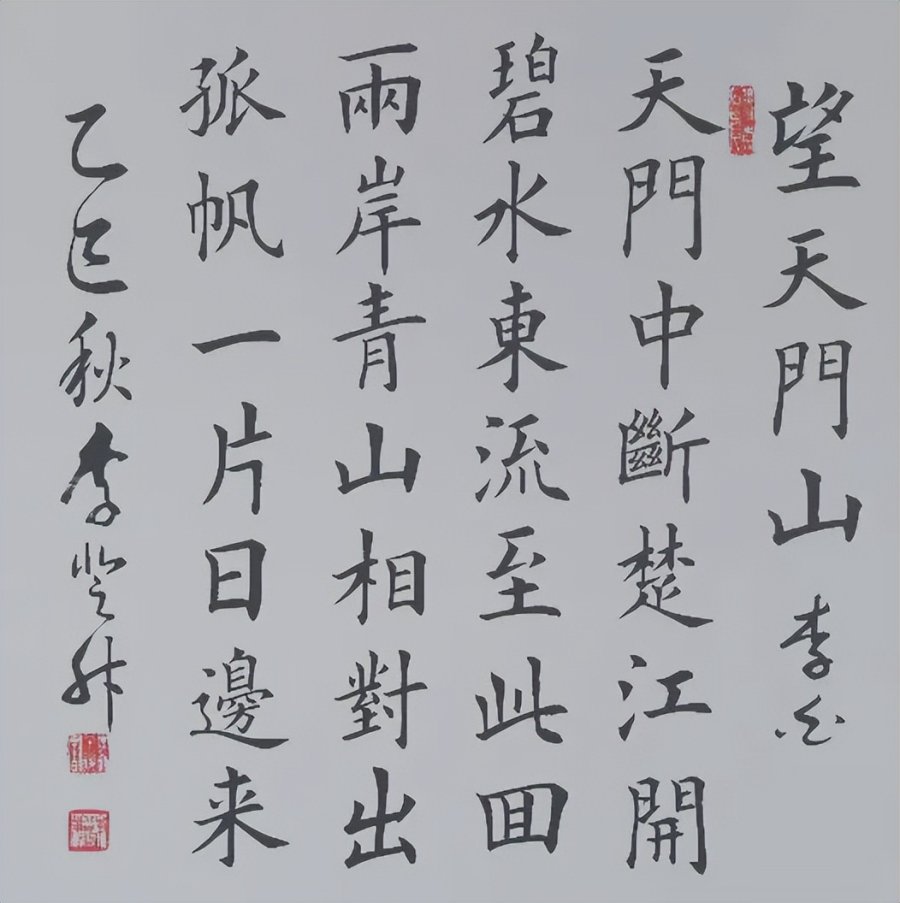 望天門山 李白
天門中斷楚江開
碧水東流至此回
兩岸青山相對出
孤帆一片日邊来
乙巳秋李登升